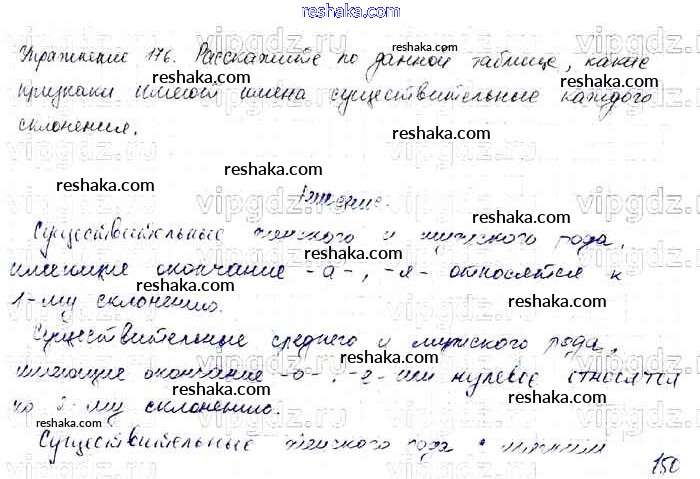 Упражнение 176. Расскажите по данной таблице, какие
признаки имеют имена существительные каждого
склонения.
Решение.
Существительные женского и мужского рода,
имеющие окончание -а-, -я- относятся к
1-му склонению.
Существительные среднего и мужского рода,
имеющие окончание -о-, -е- или нулевое относятся
ко 2-му склонению.
Существительные женского рода с
150
reshaka.com
reshaka.com
reshaka.com
reshaka.com
reshaka.com
reshaka.com
reshaka.com
reshaka.com
reshaka.com
reshaka.com
reshaka.com
reshaka.com
vipgdz.ru
vipgdz.ru
vipgdz.ru